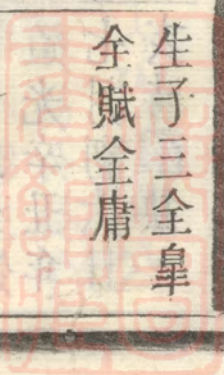 生子三全皐
全賦全庸